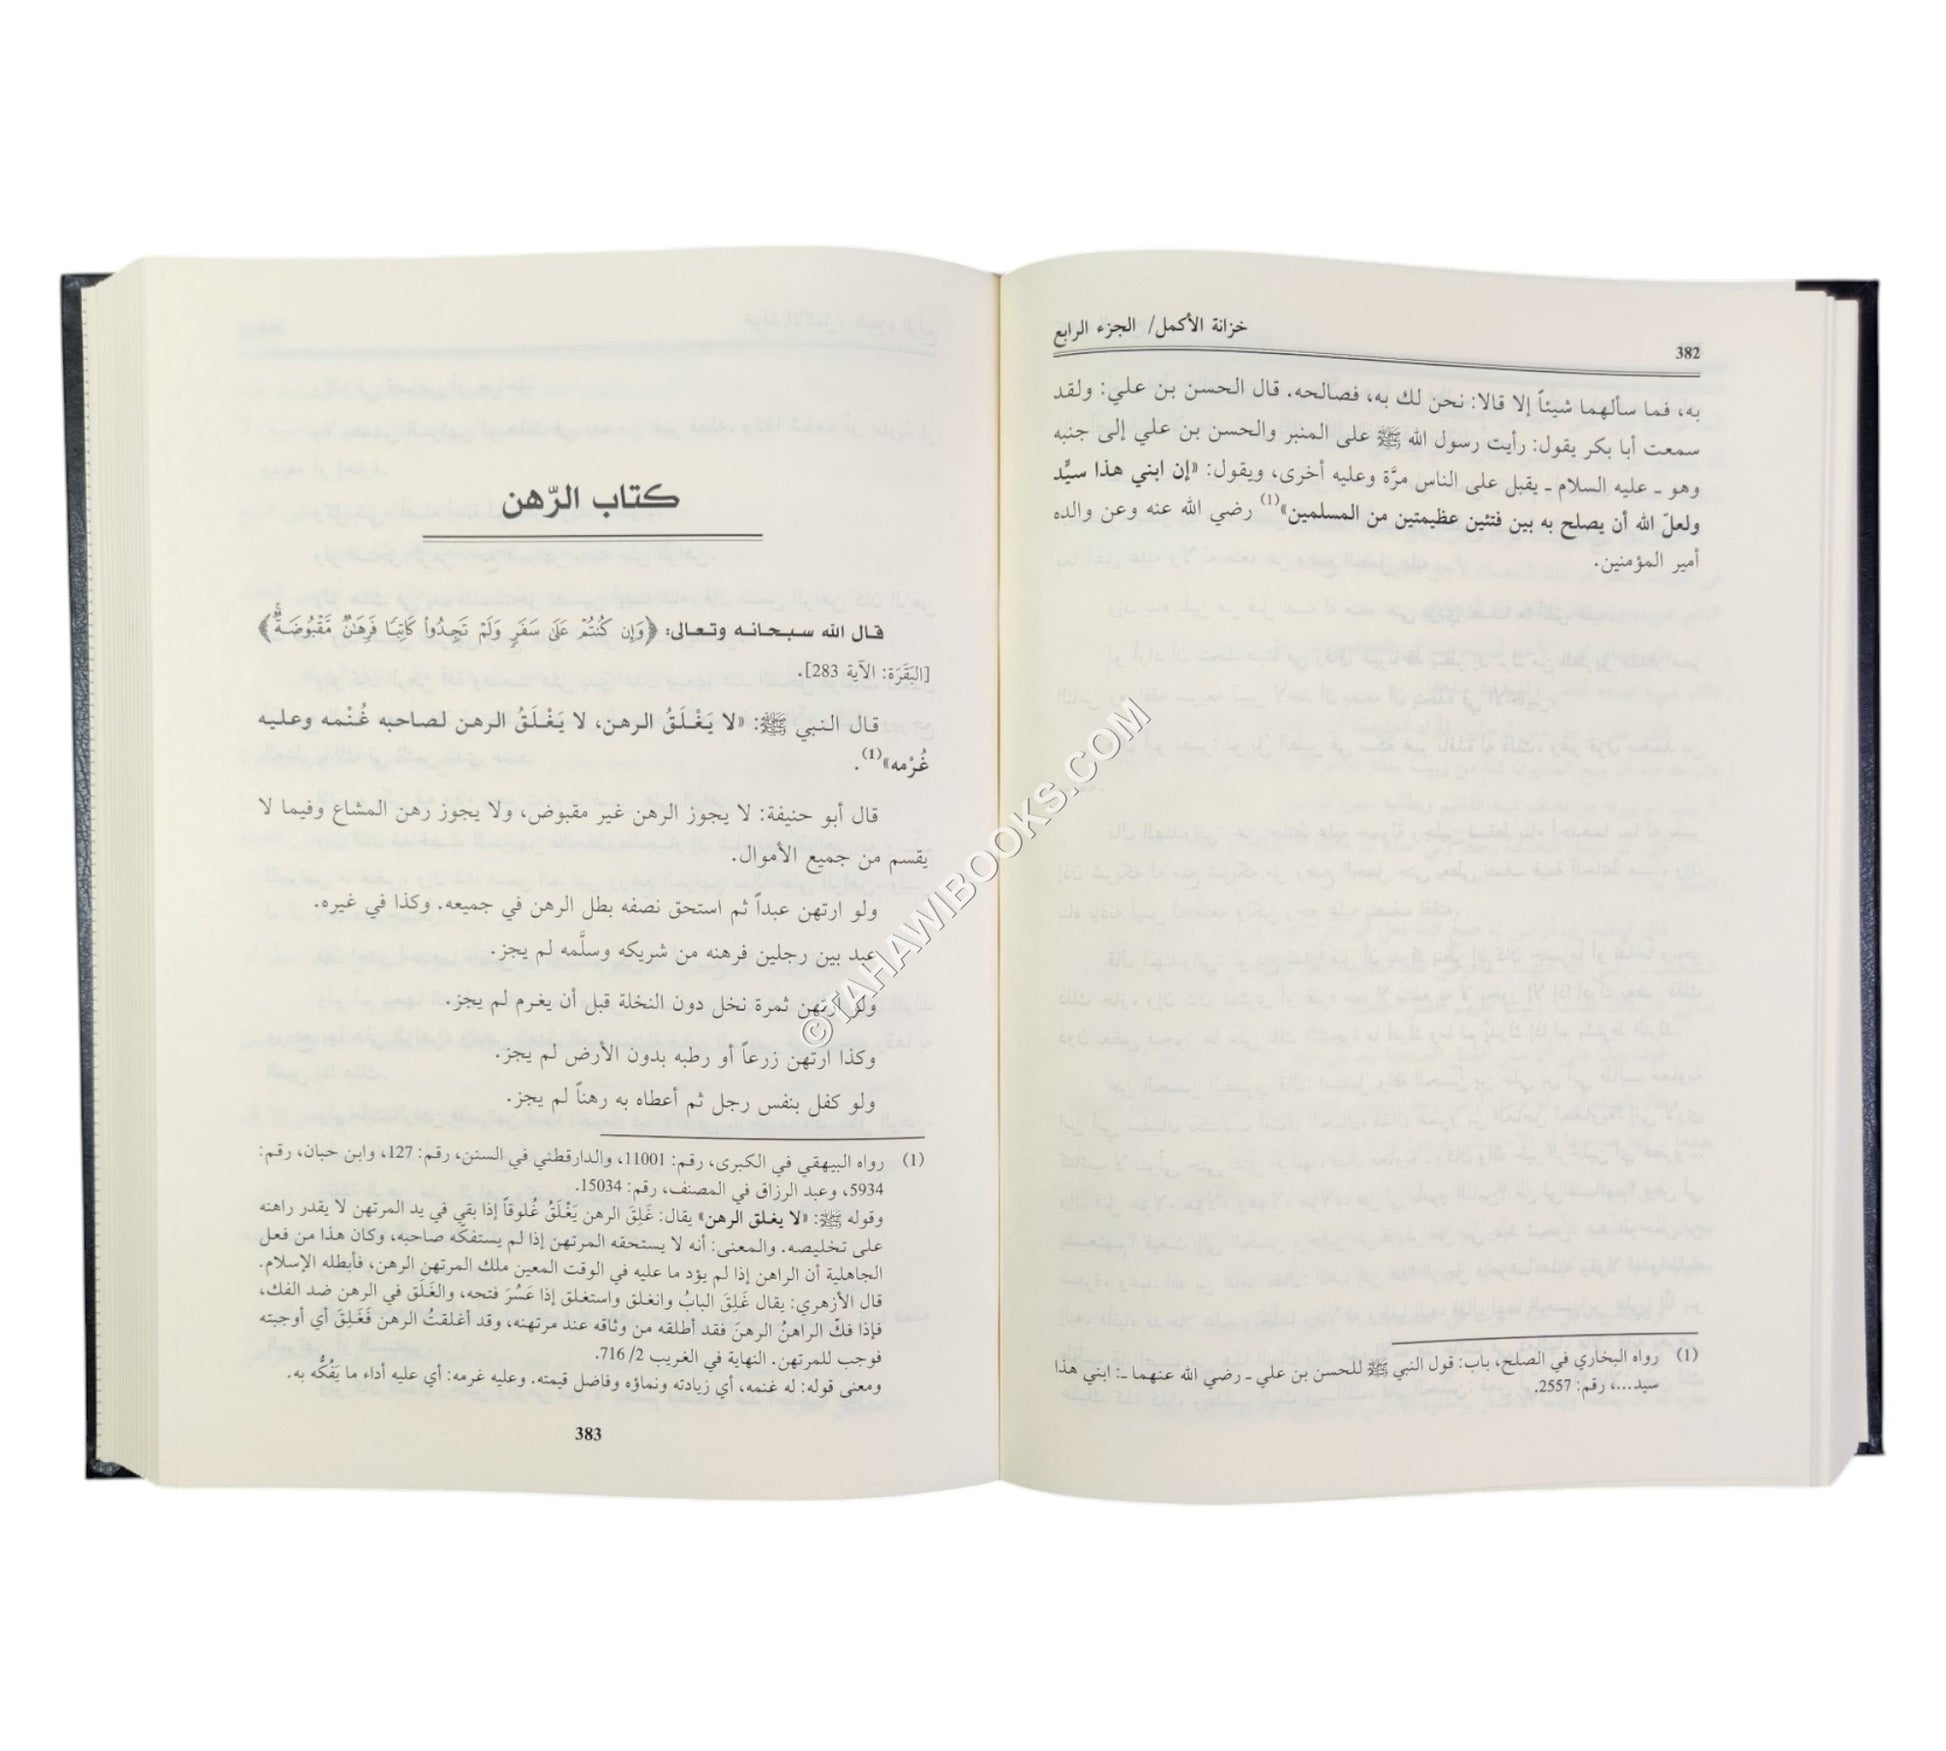 خزانة الأكمل/ الجزء الرابع
382
به، فما سألهما شيئاً إلا قالا: نحن لك به، فصالحه. قال الحسن بن علي: ولقد
سمعت أبا بكر يقول: رأيت رسول الله ﷺ على المنبر والحسن بن علي إلى جنبه
وهو ـ عليه السلام ـ يقبل على الناس مرَّة وعليه أخرى، ويقول: «إن ابني هذا سيٍّد
ولعلّ الله أن يصلح به بين فئتين عظيمتين من المسلمين»(1) رضي الله عنه وعن والده
أمير المؤمنين.
(1) رواه البخاري في الصلح، باب: قول النبي ﷺ للحسن بن علي ـ رضي الله عنهما ـ: ابني هذا
سيد...، رقم: 2557.
كتاب الرّهن
قال الله سبحانه وتعالى: ﴿وَإِن كُنتُمْ عَلَىٰ سَفَرٍ وَلَمْ تَجِدُوا كَاتِبًا فَرِهَٰنٌ مَّقْبُوضَةٌ﴾
[البَقَرَة: الآية 283].
قال النبي ﷺ: «لا يَغْلَقُ الرهن، لا يَغْلَقُ الرهن لصاحبه غُنْمه وعليه
غُرْمه»(1).
قال أبو حنيفة: لا يجوز الرهن غير مقبوض، ولا يجوز رهن المشاع وفيما لا
يقسم من جميع الأموال.
ولو ارتهن عبداً ثم استحق نصفه بطل الرهن في جميعه. وكذا في غيره.
عبد بين رجلين فرهنه من شريكه وسلَّمه لم يجز.
ولو ارتهن ثمرة نخل دون النخلة قبل أن يغرم لم يجز.
وكذا ارتهن زرعاً أو رطبه بدون الأرض لم يجز.
ولو كفل بنفس رجل ثم أعطاه به رهناً لم يجز.
(1) رواه البيهقي في الكبرى، رقم: 11001، والدارقطني في السنن، رقم: 127، وابن حبان، رقم:
5934، وعبد الرزاق في المصنف، رقم: 15034.
وقوله ﷺ: «لا يغلق الرهن» يقال: غَلِقَ الرهن يَغْلَقُ غُلوقاً إذا بقي في يد المرتهن لا يقدر راهنه
على تخليصه. والمعنى: أنه لا يستحقه المرتهن إذا لم يستفكّه صاحبه، وكان هذا من فعل
الجاهلية أن الراهن إذا لم يؤد ما عليه في الوقت المعين ملك المرتهن الرهن، فأبطله الإسلام.
قال الأزهري: يقال غَلِقَ البابُ وانغلق واستغلق إذا عَسُرَ فتحه، والغَلَق في الرهن ضد الفك،
فإذا فكّ الراهنُ الرهنَ فقد أطلقه من وثاقه عند مرتهنه، وقد أغلقتُ الرهن فَغَلِقَ أي أوجبته
فوجب للمرتهن. النهاية في الغريب 2/ 716.
ومعنى قوله: له غنمه، أي زيادته ونماؤه وفاضل قيمته. وعليه غرمه: أي عليه أداء ما يَفُكُّه به.
383
©TAHAWIBOOKS.COM